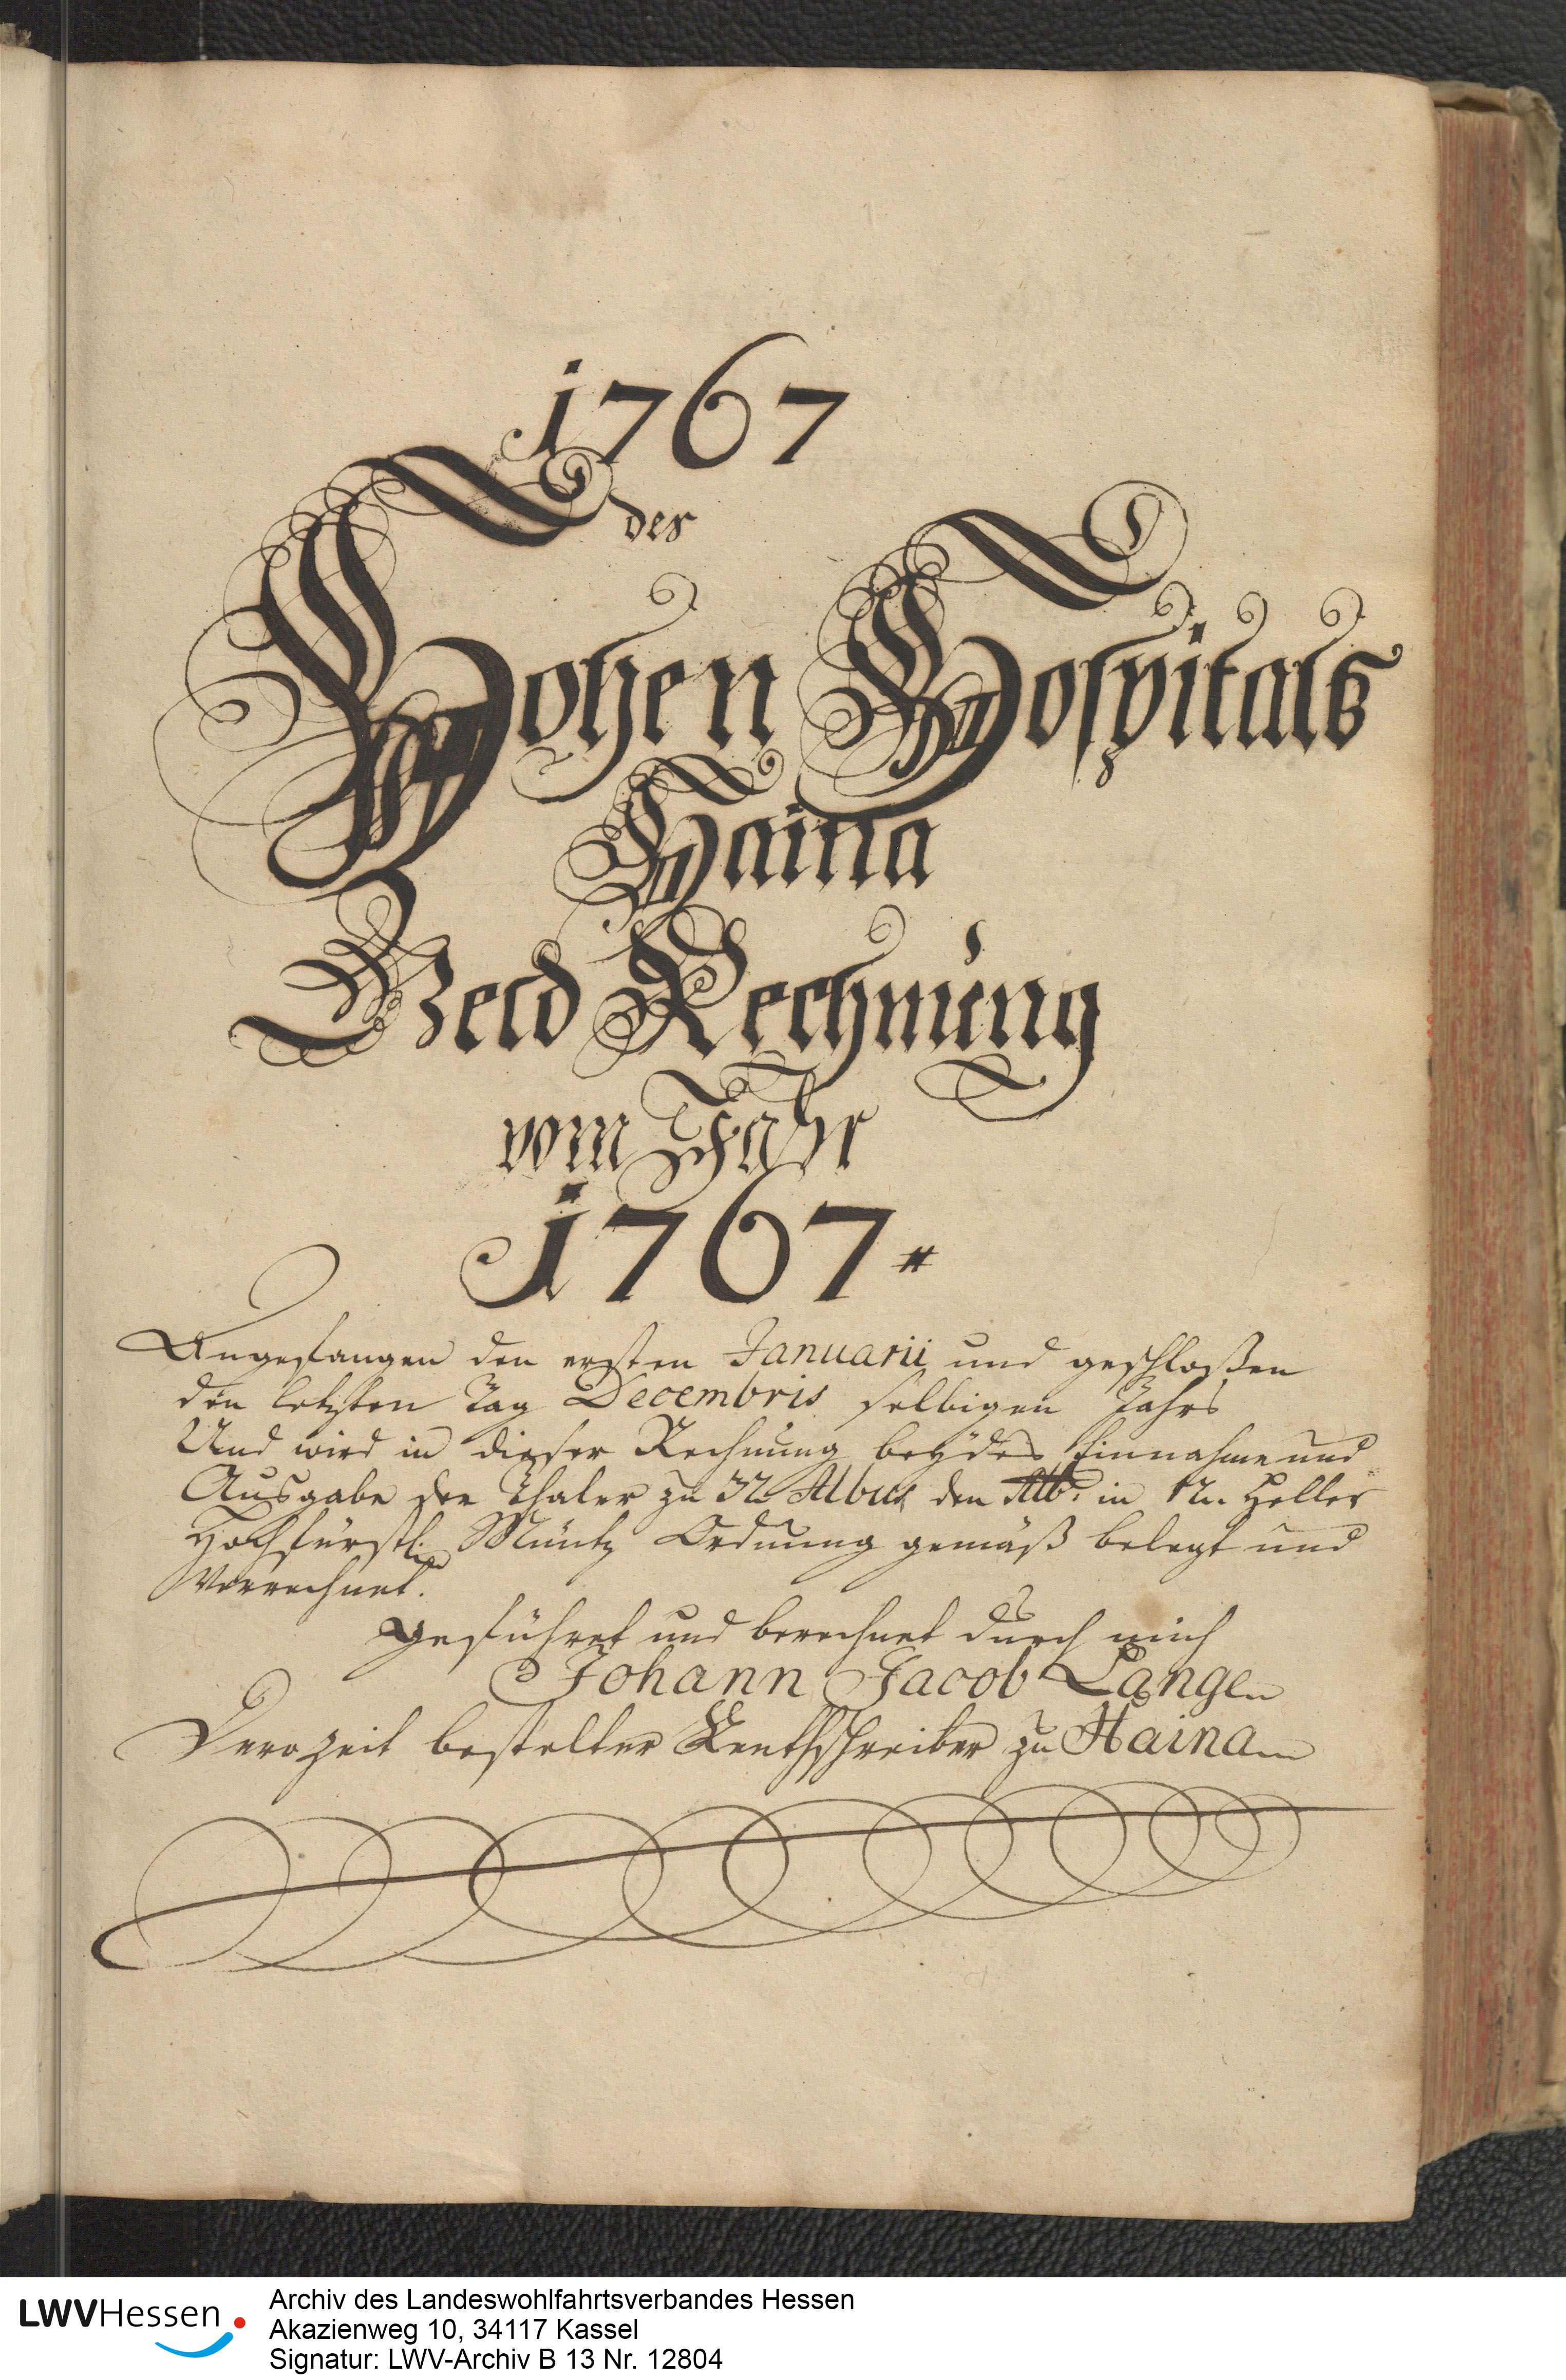 1767
des
Hohen Hospitals
Haina
Geld Rechnung
vom Jahr
1767
Angefangen den ersten Januarii und geschloßen
den letzten Tag Decembris selbigen Jahrs
Und wird in dieser Rechnung beÿdes Einnahme und
Ausgabe der Thaler zu 32 Albus den Alb. in 12 Heller
Hochfürstl. Müntz Ordnung gemäß belegt und
Verrechnet.
geführet und berechnet durch mich
Johann Jacob Langen
Derozeit bestelter Renthschreiber zu Haina
LWVHessen
Archiv des Landeswohlfahrtsverbandes Hessen
Akazienweg 10, 34117 Kassel
Signatur: LWV-Archiv B 13 Nr. 12804